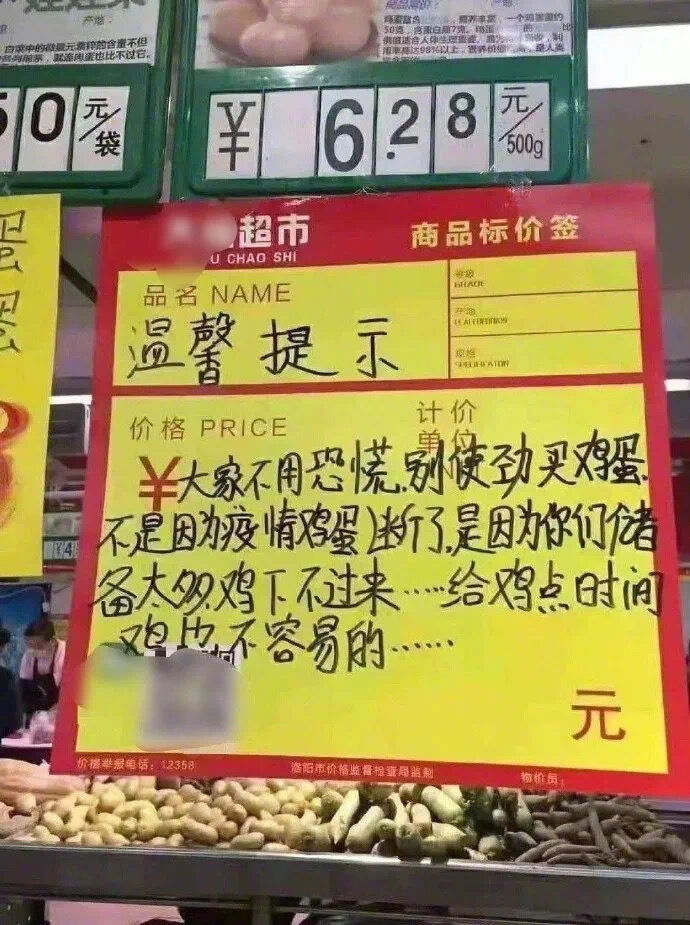 产地:
白菜中的微量元素锌的含量不但
50 元/袋
¥ 6.28 元/500g
超市
U CHAO SHI
商品标价签
品名 NAME
等级
GRADE
产地
规格
温馨提示
价格 PRICE
计价
单位
¥大家不用恐慌.别使劲买鸡蛋.
不是因为疫情鸡蛋断了,是因为你们储
备太多,鸡下不过来……给鸡点时间
鸡也不容易的……
元
价格举报电话:12358
洛阳市价格监督检查局监制
物价员:
蛋
蛋
¥4